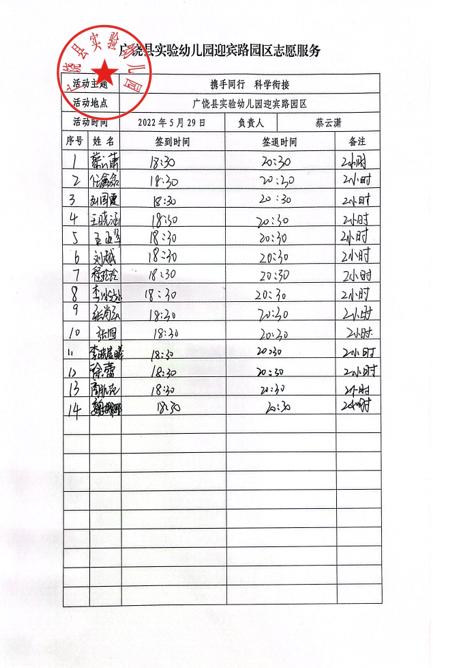 广饶县实验幼儿园迎宾路园区志愿服务
广饶县实验幼儿园
活动主题 携手同行 科学衔接
活动地点 广饶县实验幼儿园迎宾路园区
活动时间 2022年5月29日 负责人 蔡云潇
序号 姓名 签到时间 签退时间 备注
1 18:30 20:30 2小时
2 18:30 20:30 2小时
3 18:30 20:30 2小时
4 王晓 18:30 20:30 2小时
5 18:30 20:30 2小时
6 刘越 18:30 20:30 2小时
7 18:30 20:30 2小时
8 李 18:30 20:30 2小时
9 18:30 20:30 2小时
10 18:30 20:30 2小时
11 李 18:30 20:30 2小时
12 徐蕾 18:30 20:30 2小时
13 18:30 20:30 2小时
14 18:30 20:30 2小时